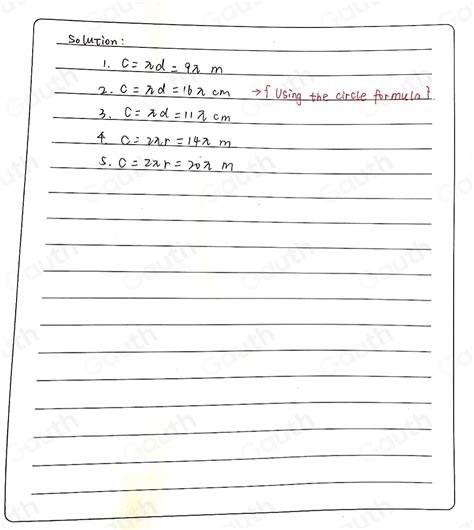 Solution:
1. C = πd = 9π m
2. C = πd = 16π cm → { Using the circle formula }.
3. C = πd = 11π cm
4. C = 2πr = 14π m
5. C = 2πr = 20π m
Gauth